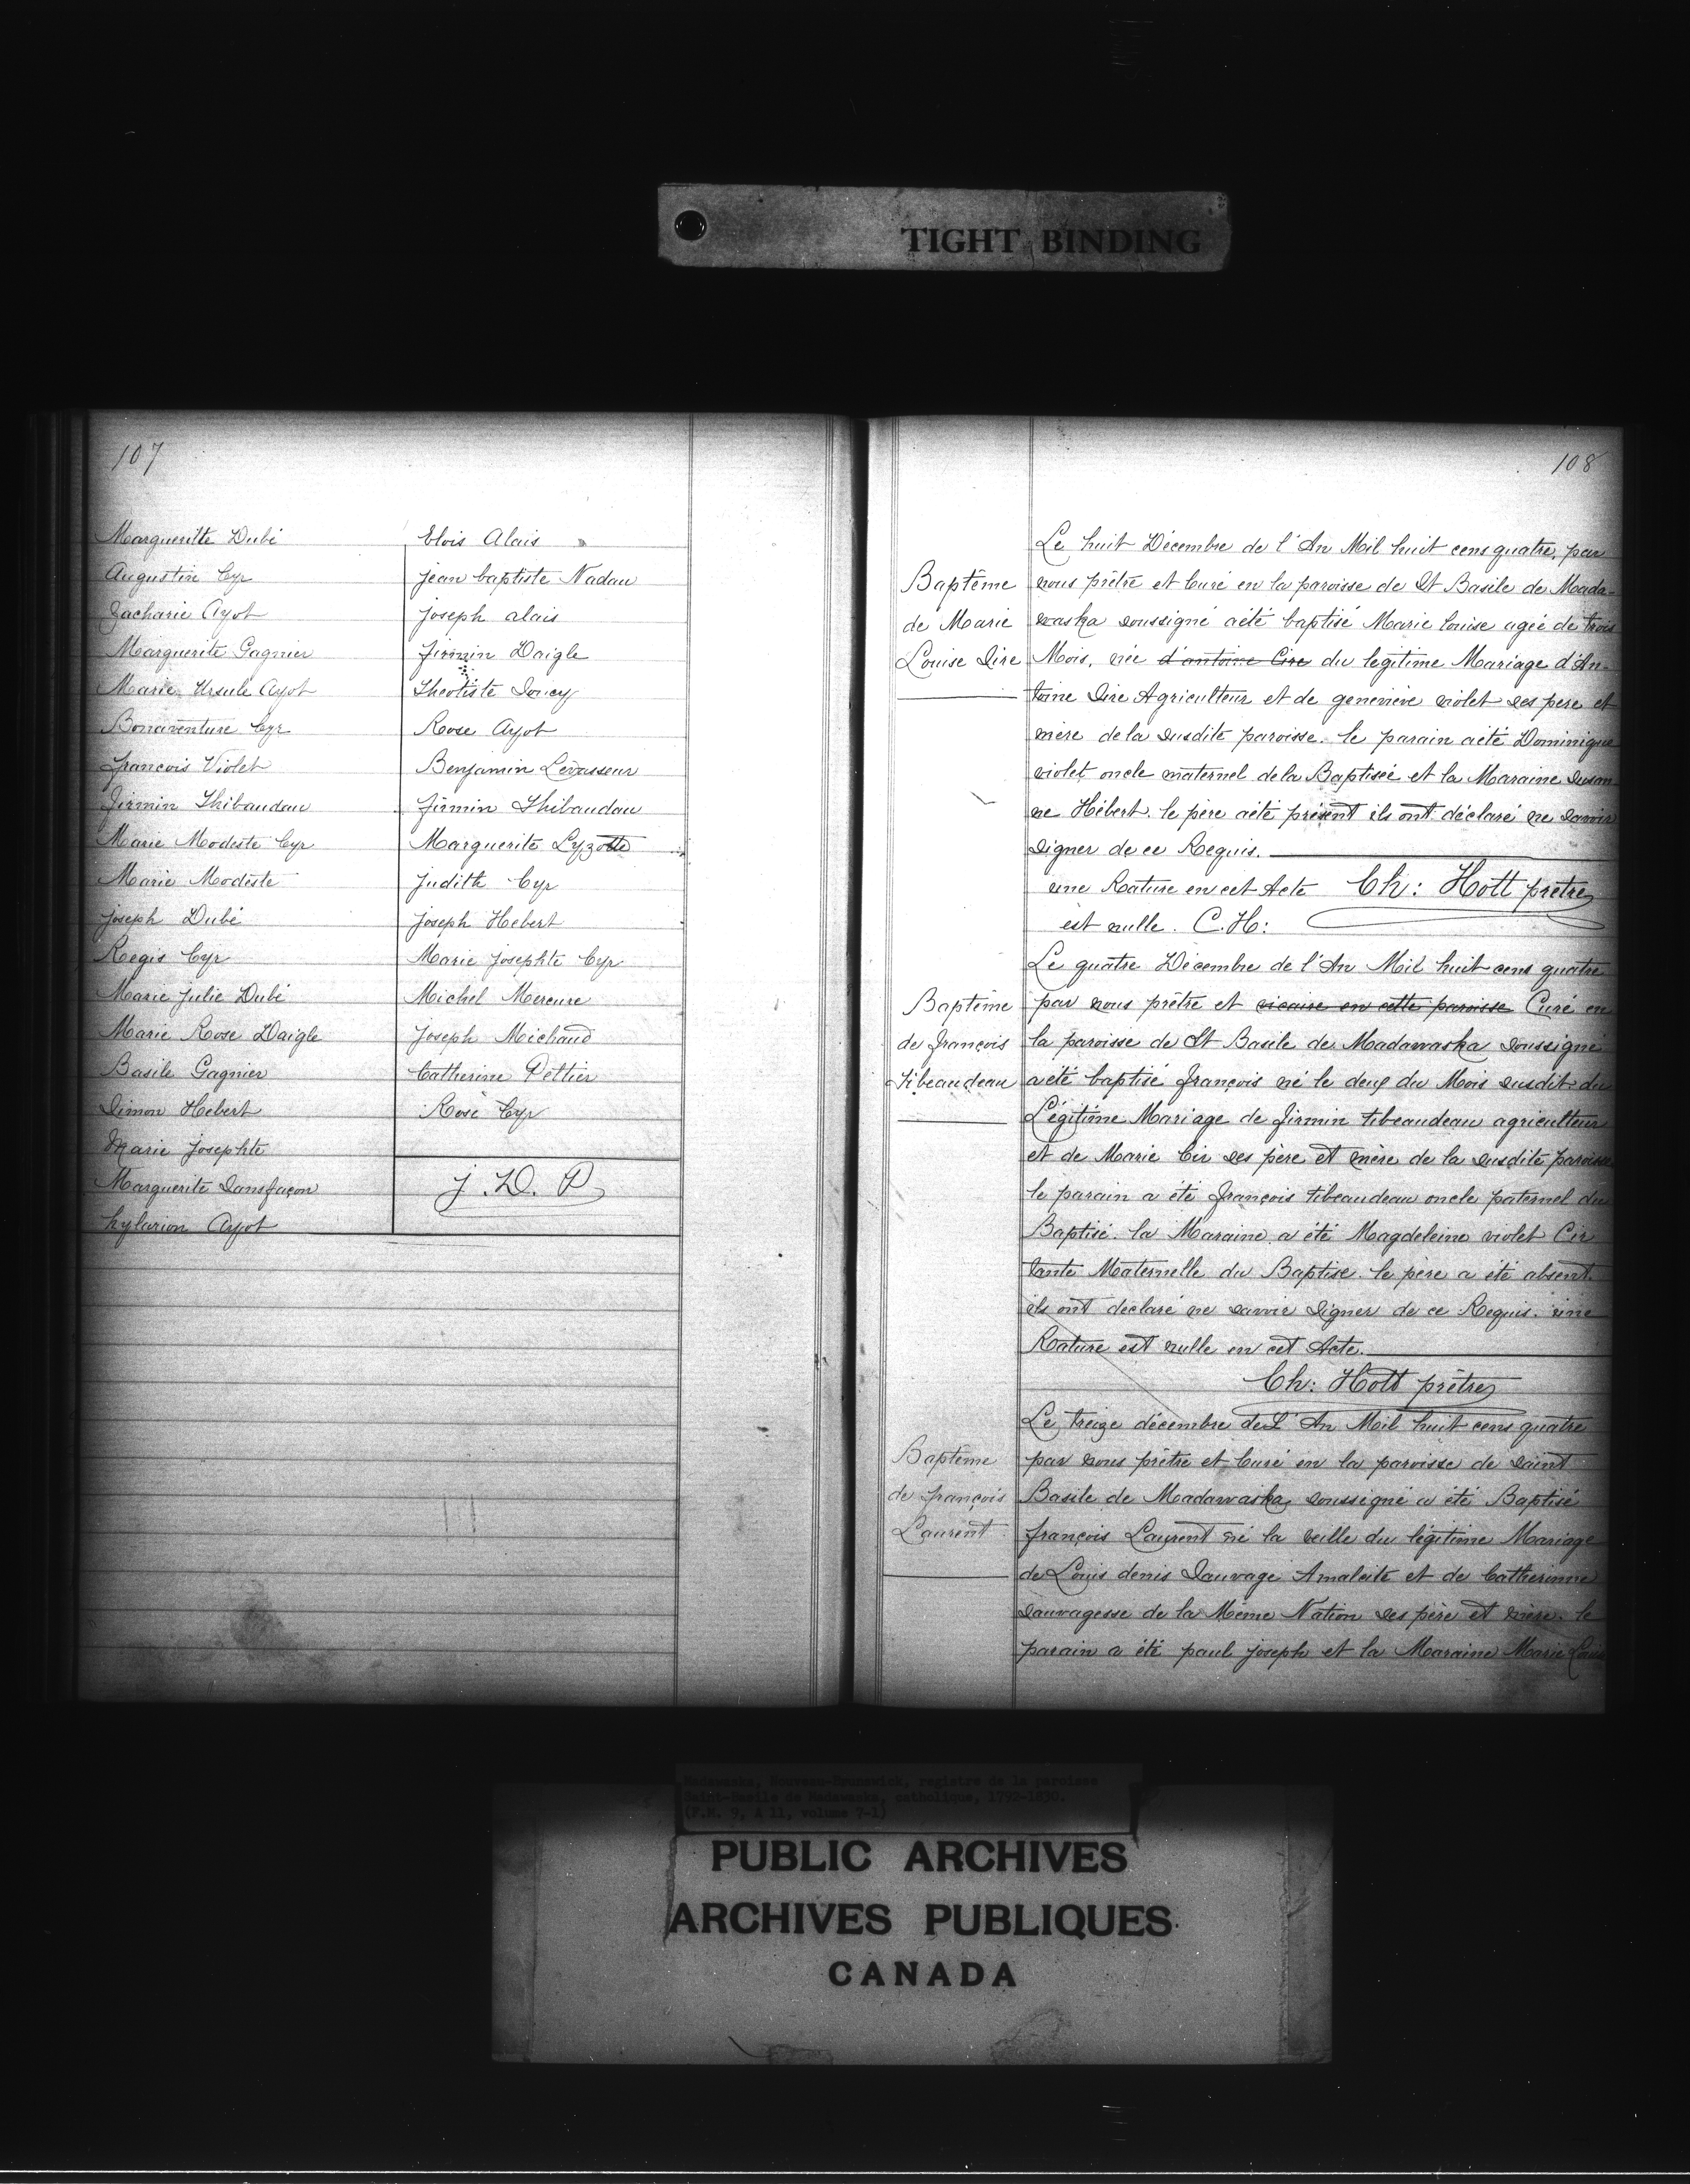 TIGHT BINDING
107
Margueritte Dubé
Augustin Cyr
Zacharie Ayot
Marguerite Gagnier
Marie Ursule Ayot
Bonaventure Cyr
françois Violet
firmin Thibaudau
Marie Modeste Cyr
Marie Modeste
joseph Dubé
Regis Cyr
Marie Julie Dubé
Marie Rose Daigle
Basile Gagnier
Simon Hebert
Marie josephte
Marguerite Sansfaçon
hylarion Ayot
Elois Alais
jean baptiste Nadau
joseph alais
firmin Daigle
Theotiste Soucy
Rose Ayot
Benjamin Levasseur
firmin Thibaudau
Marguerite Lyzotte
Judith Cyr
joseph Hebert
Marie josephte Cyr
Michel Mercure
joseph Michaud
Catherine Pettier
Rose Cyr
J. D. P
108
Baptême
de Marie
Louise Sire
Le huit Décembre de l'An Mil huit cens quatre, par
nous prêtre et Curé en la paroisse de St Basile de Mada-
waska soussigné aété baptisé Marie louise agée de trois
Mois, née d'antoine Cire du legitime Mariage d'An-
toine Sire Agriculteur et de geneviève violet ses pere et
mère de la susdite paroisse. le parain aété Dominique
violet oncle maternel de la Baptisée et la Maraine Susan
ne Hébert. le père aété présent ils ont déclaré ne savoir
signer de ce Requis.
une Rature en cet Acte Ch: Hott prêtre
est nulle. C.H:
Baptême
de françois
tibeaudeau
Le quatre Décembre de l'An Mil huit cens quatre
par nous prêtre et vicaire en cette paroisse Curé en
la paroisse de St Basile de Madawaska soussigné
aété baptisé françois né le deux du Mois susdit du
Légitime Mariage de firmin tibeaudeau agriculteur
et de Marie Cir ses père et mère de la susdite paroisse
le parain a été françois tibeaudeau oncle paternel du
Baptisé. la Maraine a été Magdeleine violet Cir
tante Maternelle du Baptisé. le père a été absent.
ils ont déclaré ne savoir signer de ce Requis. une
Rature est nulle en cet Acte.
Ch: Hott prêtre
Baptême
de françois
Laurent
Le treize décembre de L'An Mil huit cens quatre
par nous prêtre et Curé en la paroisse de saint
Basile de Madawaska, soussigné a été Baptisé
françois Laurent né la veille du légitime Mariage
de Louis denis Sauvage Amalcite et de Catherinne
sauvagesse de la Même Nation ses père et mère. le
parain a été paul joseph et la Maraine Marie
Madawaska, Nouveau-Brunswick, registre de la paroisse
Saint-Basile de Madawaska, catholique, 1792-1830.
(F.M. 9, A 11, volume 7-1)
PUBLIC ARCHIVES
ARCHIVES PUBLIQUES
CANADA